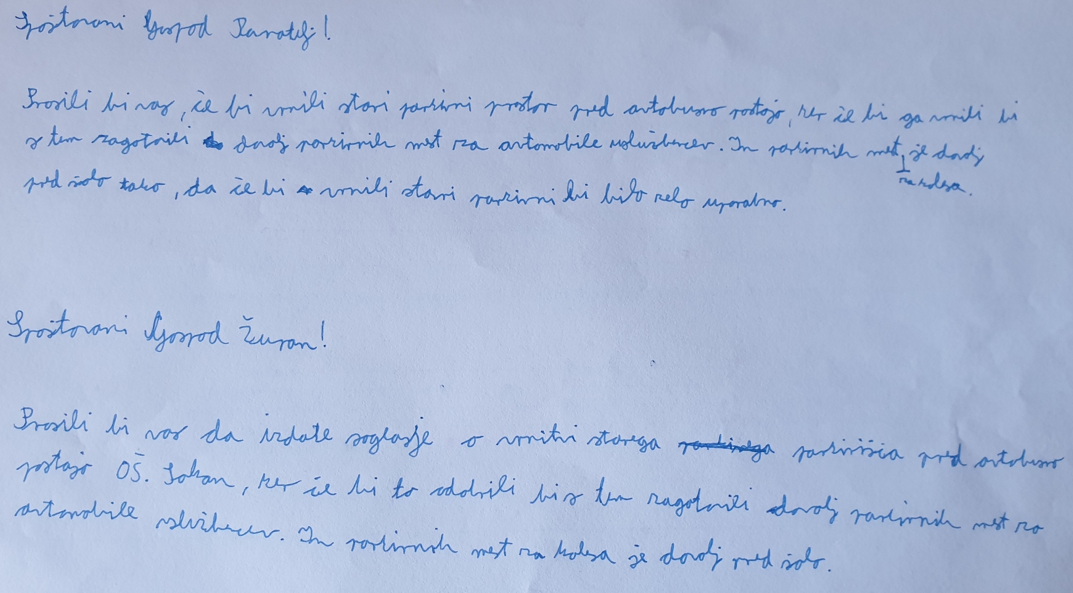 Spoštovani Gospod Ravatelj!
Prosili bi vas, če bi vrnili stari parkirni prostor pred avtobusno postajo, ker če bi ga vrnili bi
s tem zagotovili dovolj parkirnih mest za avtomobile uslužbencev. In parkirnih mest je dovolj
za kolesa.
pred šolo tako, da če bi vrnili stari parkirni bi bilo zelo uporabno.
Spoštovani Gospod Župan!
Prosili bi vas da izdate soglasje o vrnitvi starega parkirišča pred avtobusno
postajo OŠ. Sokan, ker če bi to odobrili bi s tem zagotovili dovolj parkirnih mest za
avtomobile uslužbencev. In parkirnih mest za kolesa je dovolj pred šolo.